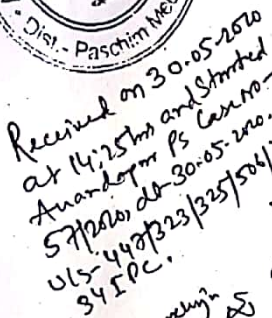 Dist.- Paschim Med
Received on 30.05.2020
at 14:25 hrs and Started
Anandapur PS Case No-
57/2020, dt-30.05.2020.
U/S- 447/323/325/506/
34 IPC.